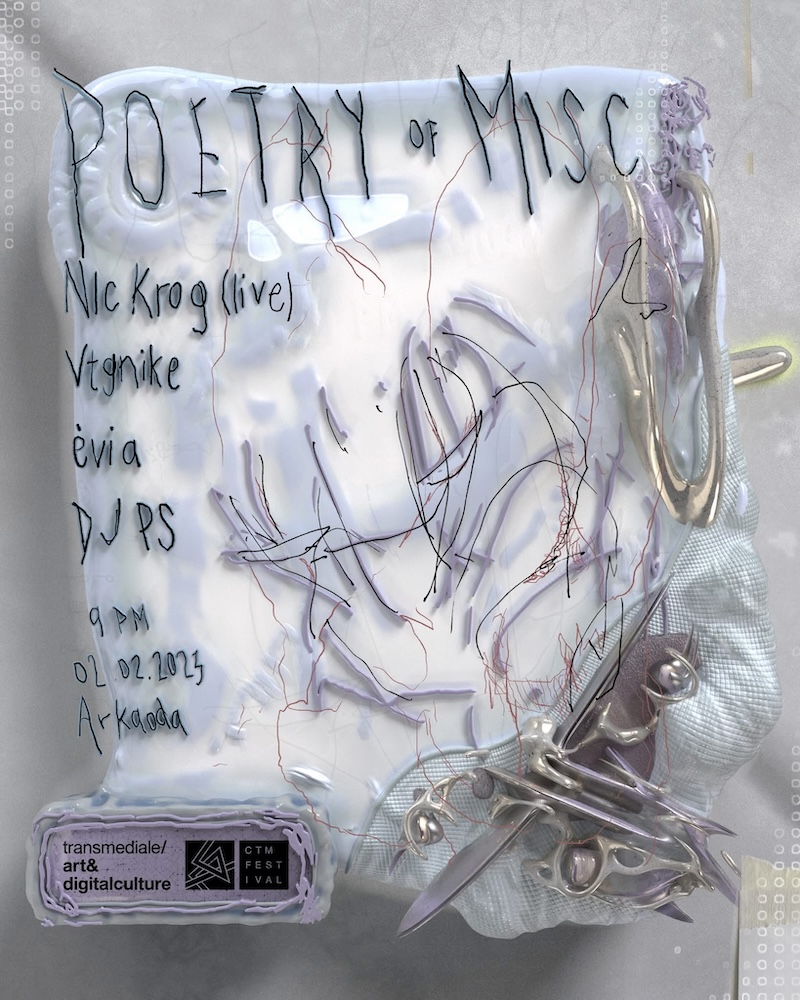 POETRY OF MISC
NIc Krog (live)
Vtgnike
èvia
DJ PS
9 PM
02.02.2023
Arkaoda
transmediale/
art&
digitalculture
CTM
FEST
IVAL